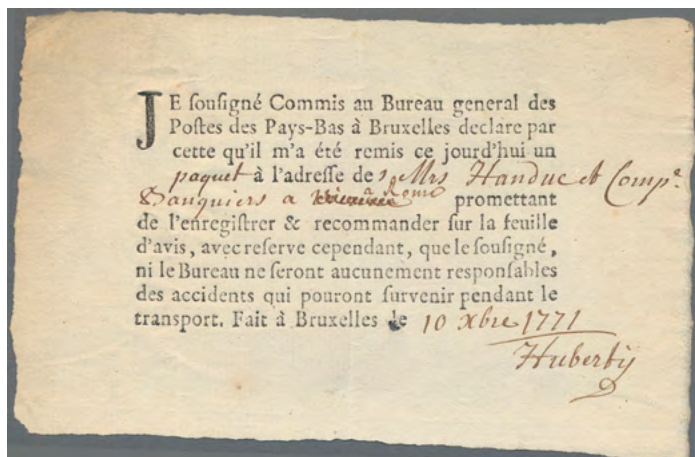 JE souſigné Commis au Bureau general des
Poſtes des Pays-Bas à Bruxelles declare par
cette qu'il m'a été remis ce jourd'hui un
paquet à l'adreſſe des Mrs Handuc et Comp.e
Banquiers a Rome promettant
de l'enregiſtrer & recommander ſur la feuille
d'avis, avec reſerve cependant, que le ſouſigné,
ni le Bureau ne ſeront aucunement reſponſables
des accidents qui pouront ſurvenir pendant le
tranſport. Fait à Bruxelles le 10 xbre 1771
Huberty